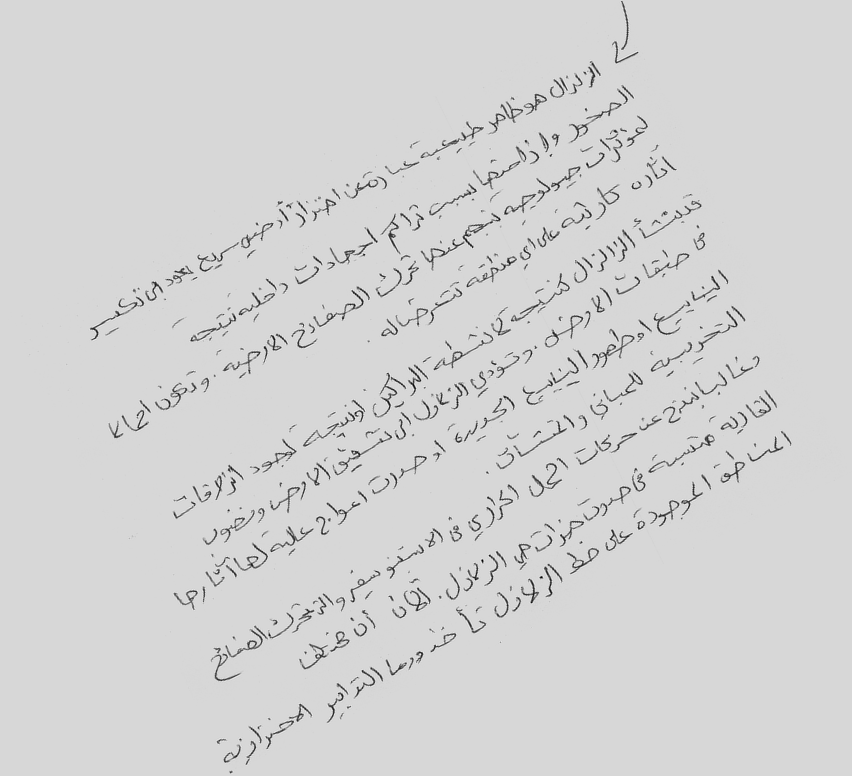 الزلزال هو ظاهر طبيعية عبارة عن اهتزاز أرضي سريع يعود الى تكسير
الصخور وإزاحتها بسبب تراكم اجهادات داخلية نتيجة
لمؤثرات جيولوجية ينجم عنها تحرك الصفائح الارضية . وتكون احيانا
اثاره كارثية على اي منطقة تتعرض له .
قد ينشأ الزلزال كنتيجة لانشطة البراكين او نتيجة لوجود انزلاقات
فى طبقات الارض . وتؤدي الزلازل الى تشقيق الارض ونضوب
الينابيع او ظهور الينابيع الجديدة او حدوث امواج عالية لها آثارها
التخريبية للمباني والمنشآت .
وغالبا ينتج عن حركات الحمل الحراري في الاسثنوسفير والتي تحرك الصفائح
القارية متسببة في حدوث هزات هي الزلازل . كما أن مختلف
المناطق الموجودة على خط الزلازل تأخذ دوما التدابير الاحترازية